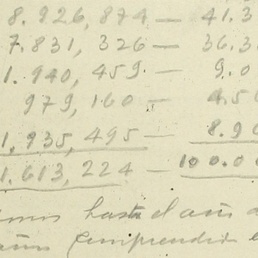 8.926,874 — 41.3
7.831,326 — 36.3
1.940,459 — 9.0
979,160 — 4.5
1,935,495 — 8.9
1.613,224 — 100.0
hasta el año